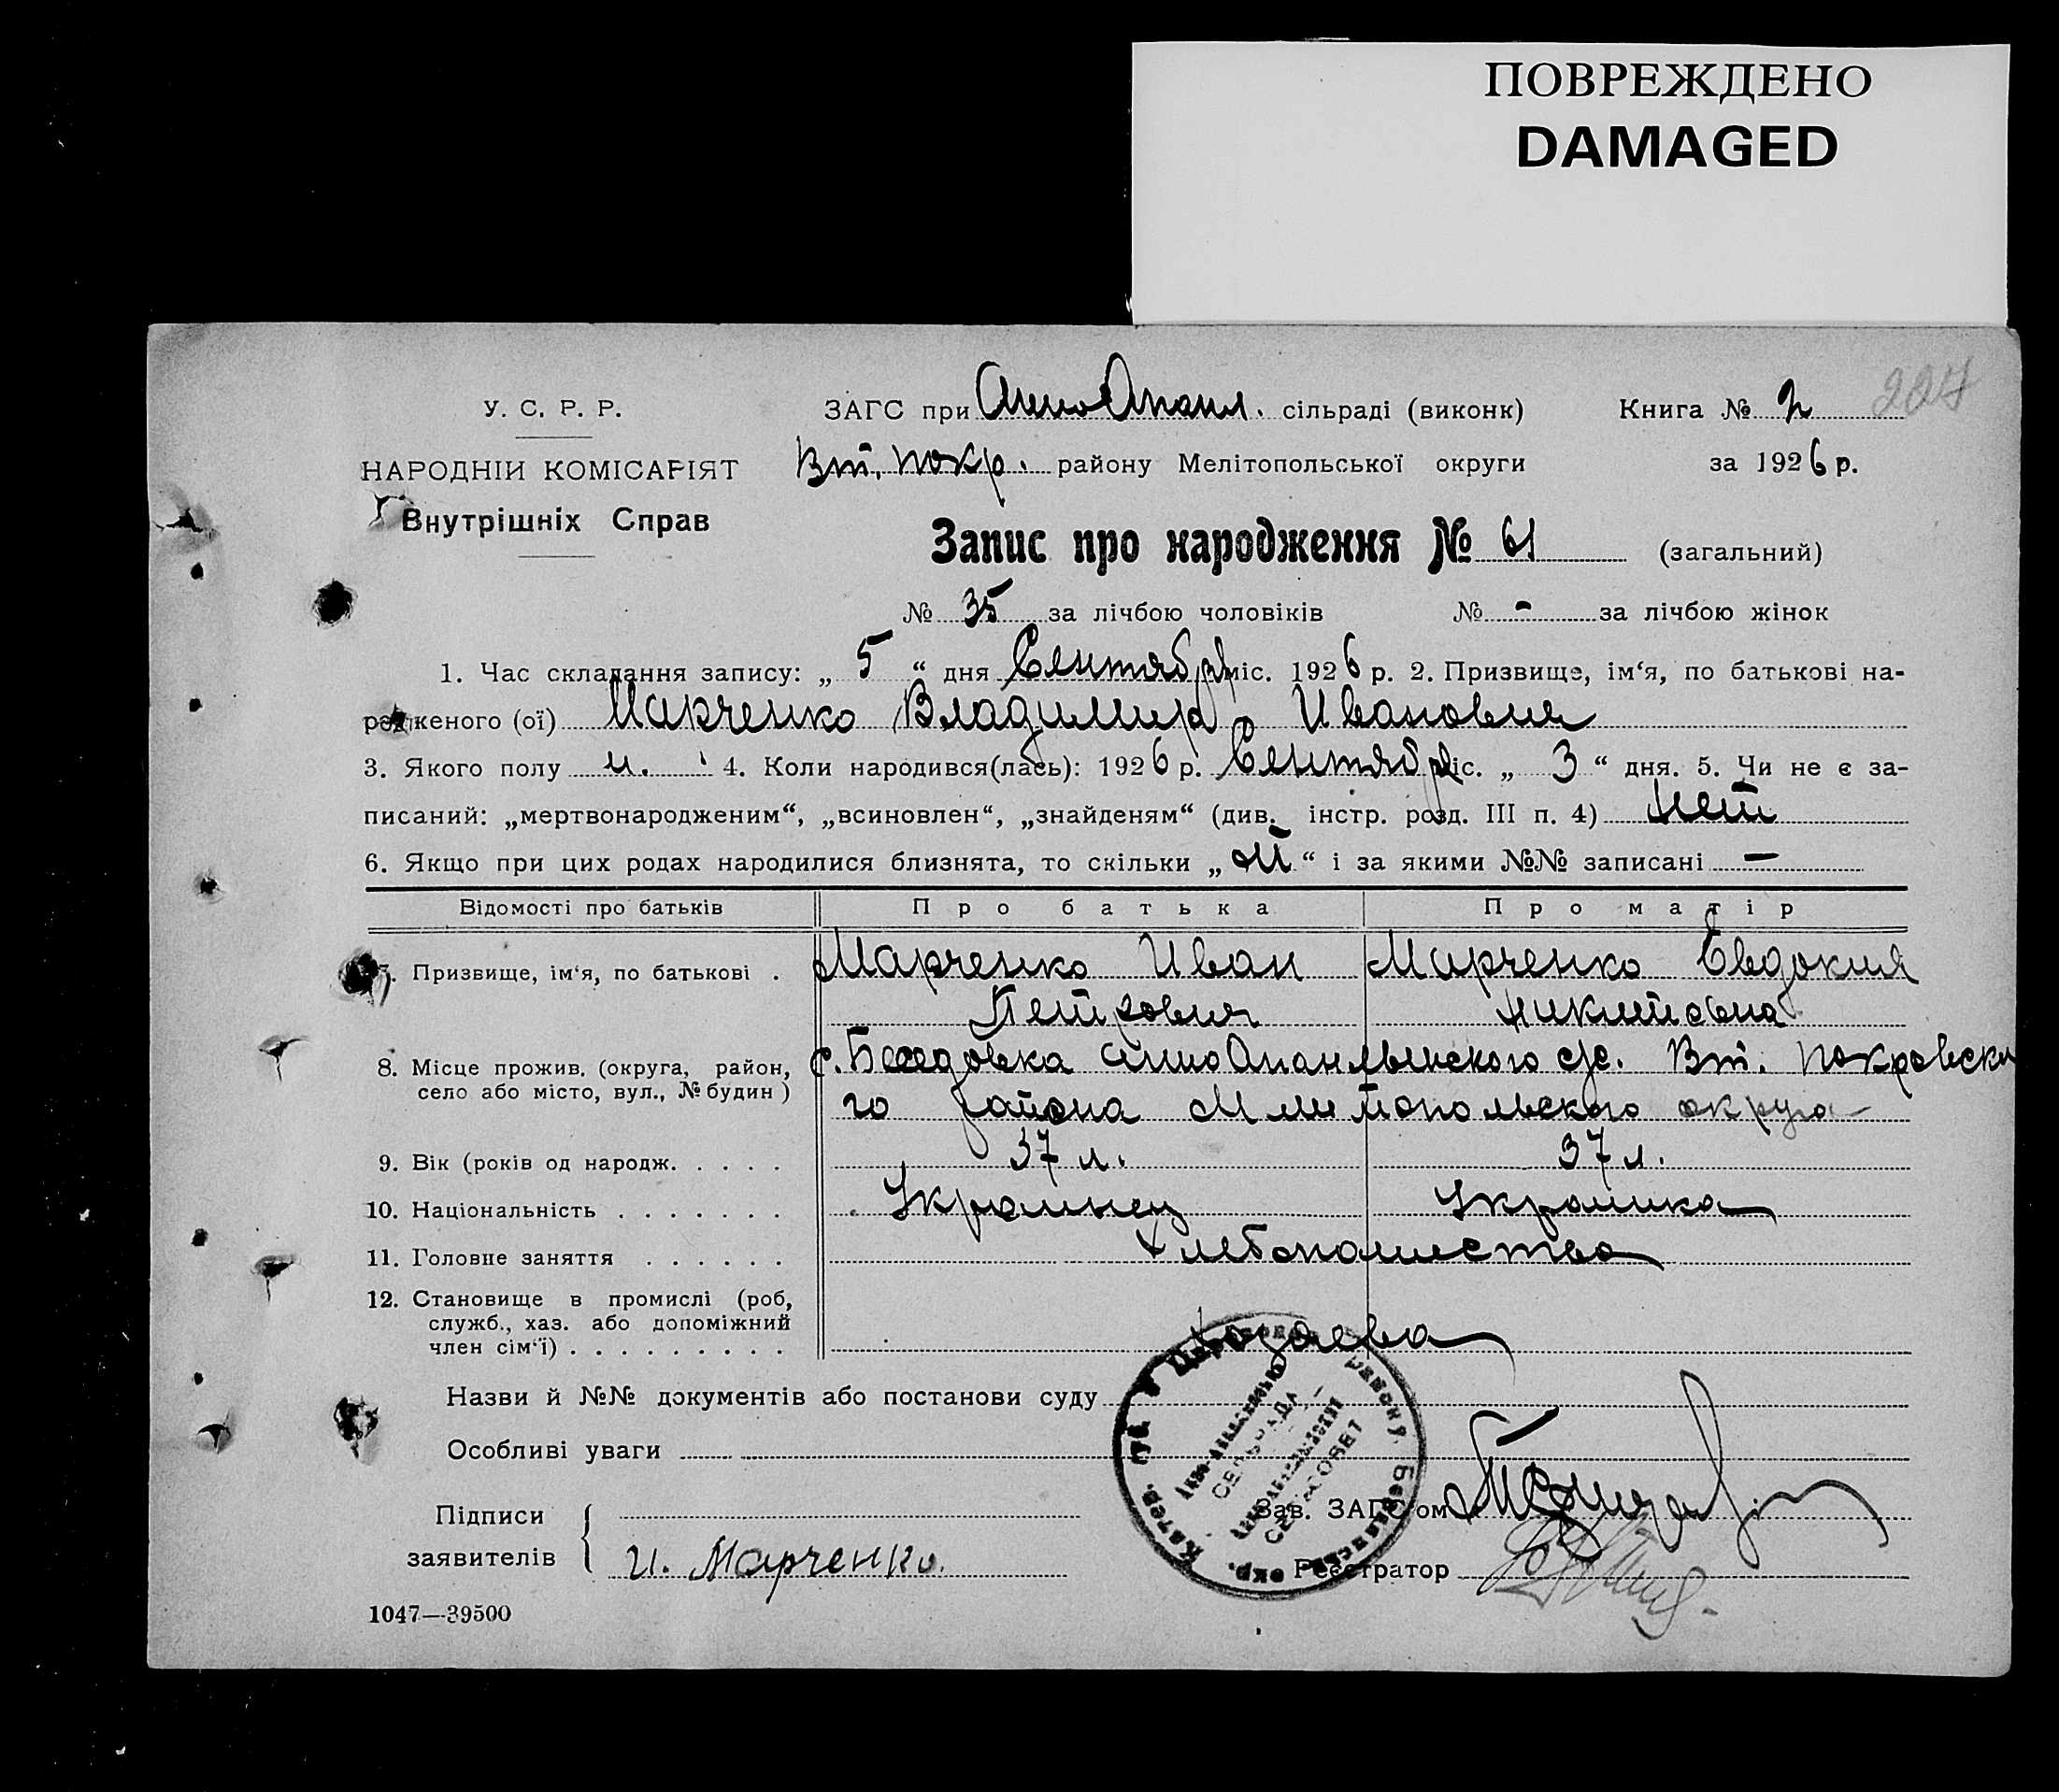 ПОВРЕЖДЕНО
DAMAGED
227
У. С. Р. Р.
ЗАГС при Анно Опанл. сільраді (виконк)
Книга № 2
НАРОДНІЙ КОМІСАРІЯТ
Вт. покр. району Мелітопольської округи
за 1926 р.
Внутрішніх Справ
Запис про народження № 61 (загальний)
№ 35 за лічбою чоловіків № - за лічбою жінок
1. Час складання запису: „ 5 “ дня Сентября міс. 1926 р. 2. Призвище, ім‘я, по батькові на-
родженого (ої) Марченко Владимир Иванович
3. Якого полу м. 4. Коли народився(лась): 1926 р. Сентября міс. „ 3 “ дня. 5. Чи не є за-
писаний: „мертвонародженим“, „всиновлен“, „знайденям“ (див. інстр. розд. III п. 4) нет
6. Якщо при цих родах народилися близнята, то скільки „ “ і за якими №№ записані —
Відомості про батьків
Про батька
Про матір
7. Призвище, ім‘я, по батькові .
Марченко Иван
Петрович
Марченко Евдокия
Никитовна
8. Місце прожив. (округа, район,
село або місто, вул., № будин )
с. Беседовка Анно Опанлынского с/с. Вт. Покровско
го района Мелитопольского округа
9. Вік (років од народж. . . . .
37 л.
37 л.
10. Національність . . . . . . .
Украинец
Украинка
11. Головне заняття . . . . . .
Хлебопашество
12. Становище в промислі (роб,
служб., хаз. або допоміжний
член сім‘ї) . . . . . . . . .
Хозяева
Назви й №№ документів або постанови суду
Особливі уваги
Підписи
заявителів
И. Марченко.
Зав. ЗАГС‘ом
Реєстратор
Катер. губ.
району Бердянськ. окр.
СЕЛЬРАДА
СЕЛЬСОВЕТ
1047—39500